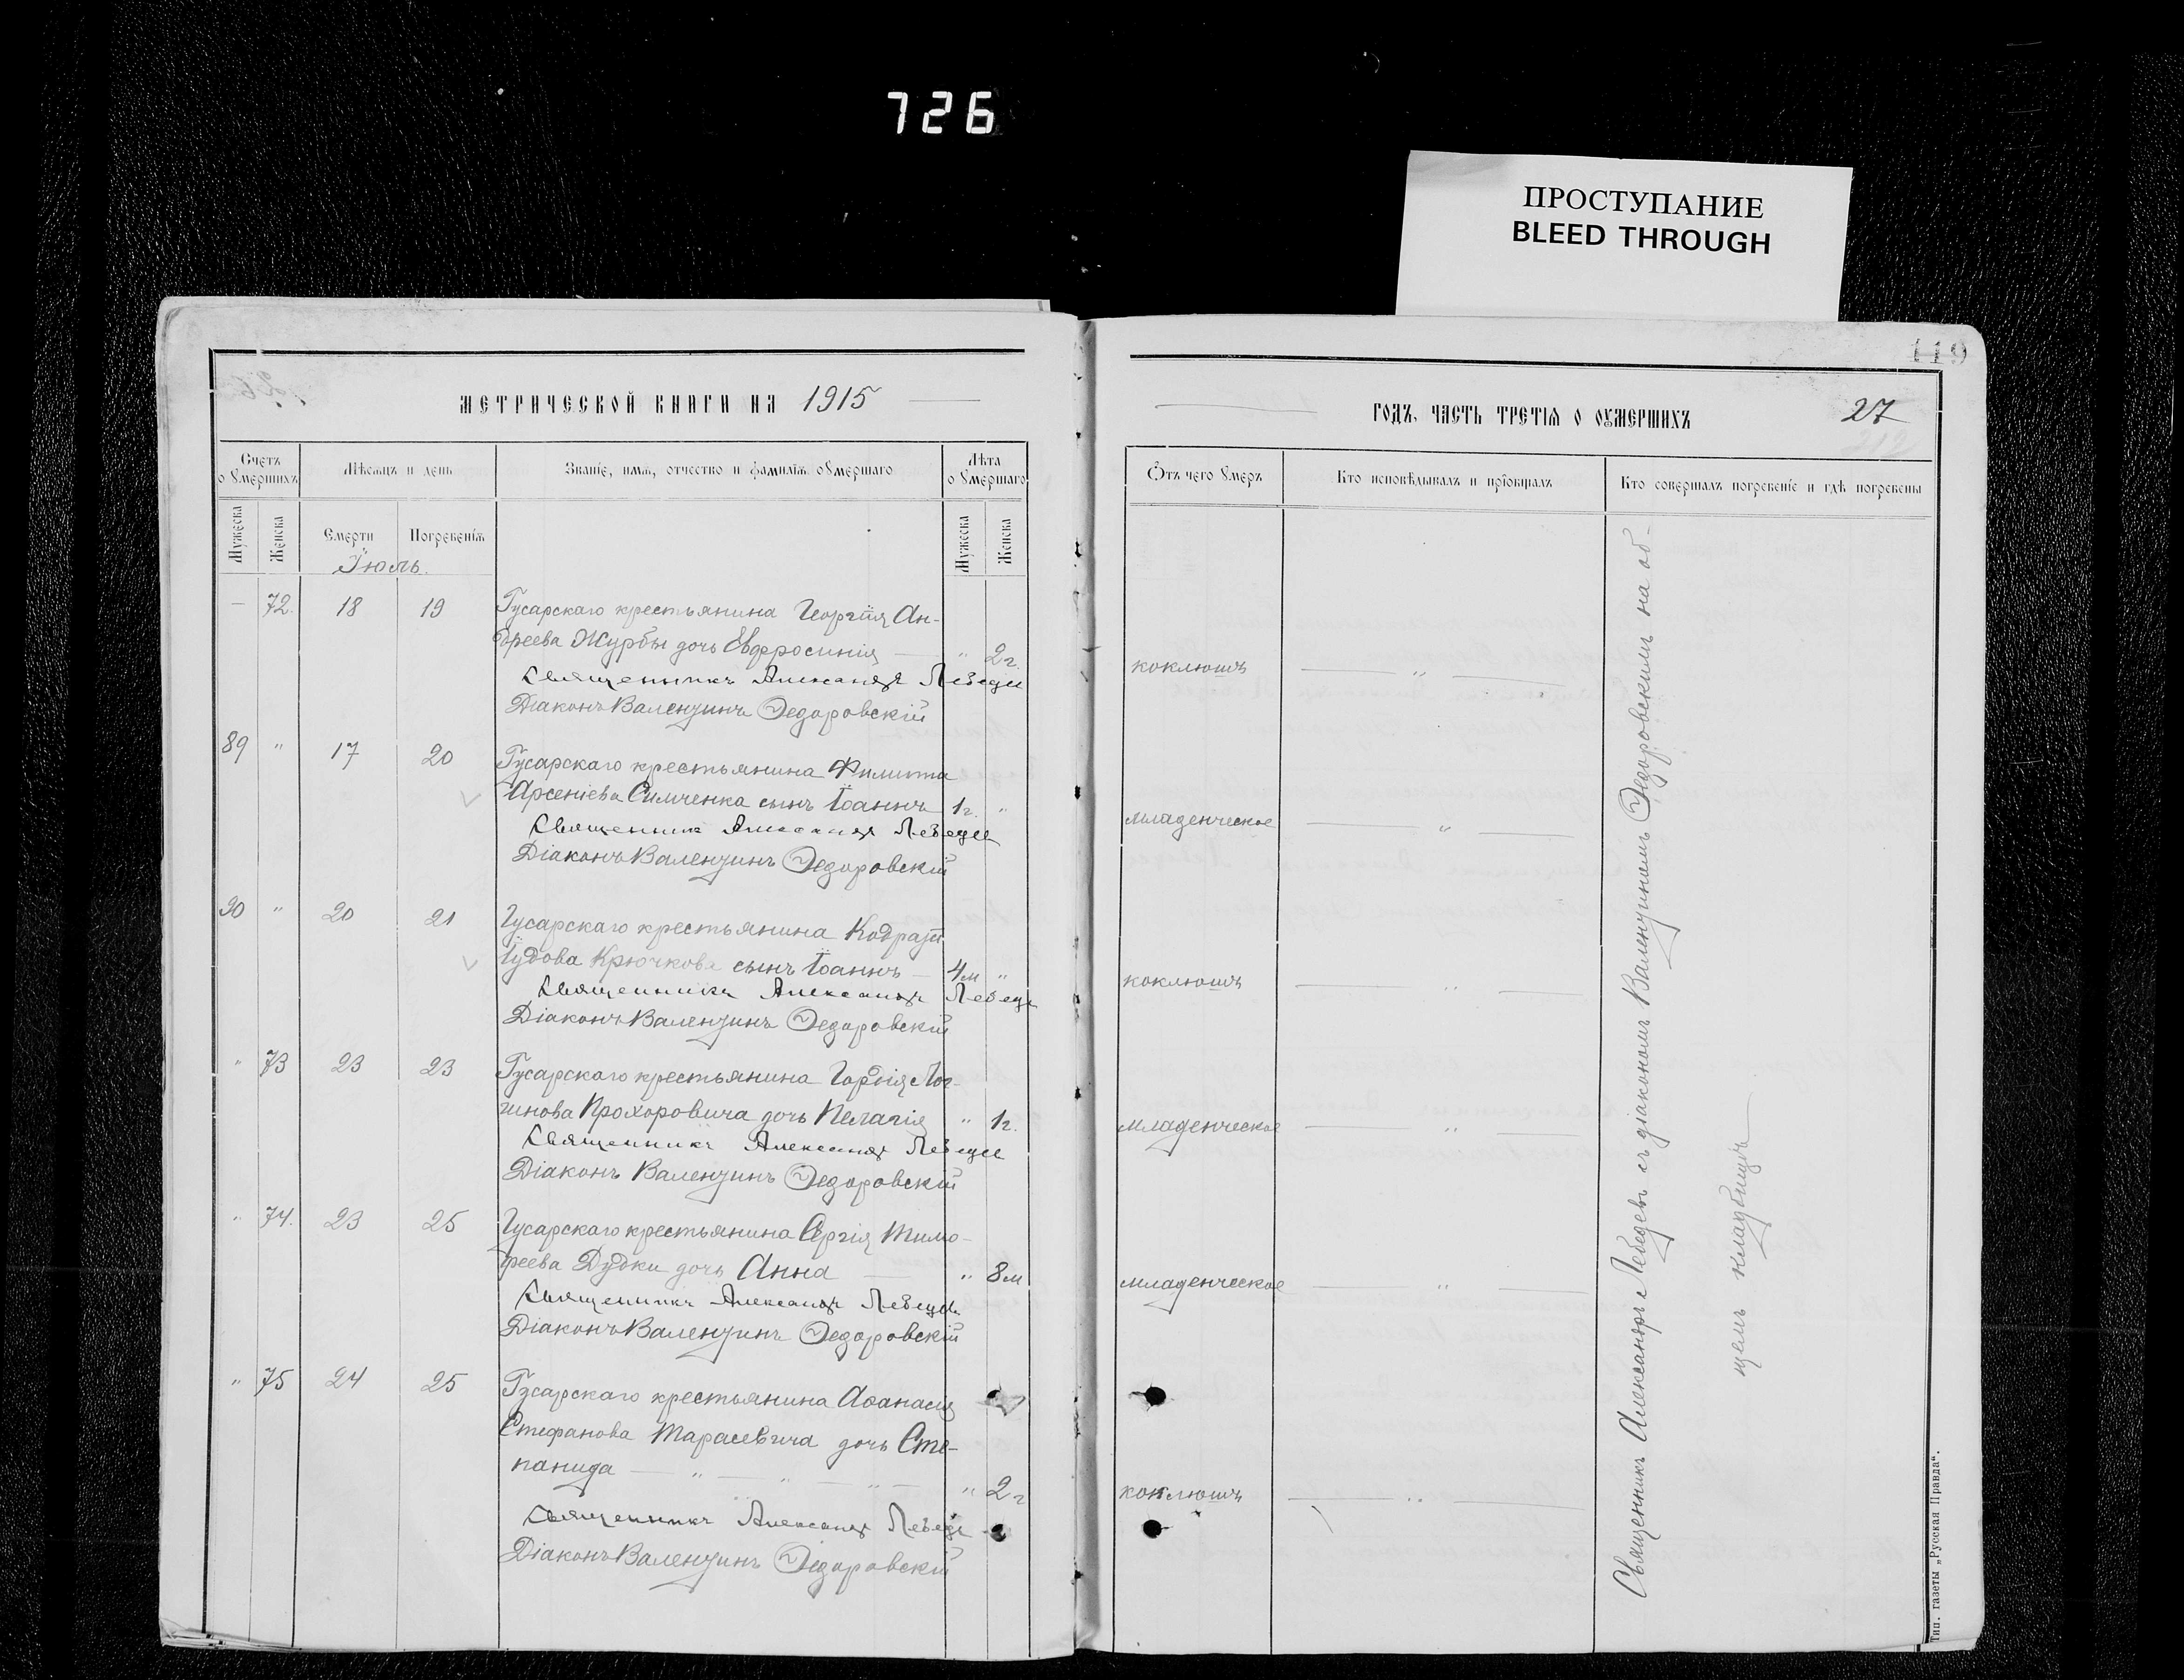 726
ПРОСТУПАНИЕ
BLEED THROUGH
119
МЕТРИЧЕСКОЙ КНИГИ НА 1915
ГОДЪ, ЧАСТЬ ТРЕТІЯ О ОУМЕРШИХЪ
27
Счетъ оумершихъ
Мѣсяцъ и день
Званіе, имя, отчество и фамилія оумершаго
Лѣта оумершаго
Отъ чего умеръ
Кто исповѣдывалъ и пріобщалъ
Кто совершалъ погребеніе и гдѣ погребены
Мужеска
Женска
Смерти
Погребенія
Мужеска
Женска
Іюль.
— 72. 18 19 Гусарскаго крестьянина Георгія Ан-
дреева Журбы дочь Евфросинія — " 2 г. коклюшъ — " —
Священникъ Александръ Лебедев
Діаконъ Валентинъ Федоровскій
89 " 17 20 Гусарскаго крестьянина Филиппа
Арсеніева Симченка сынъ Іоаннъ 1 г. " младенческое — " —
Священникъ Александръ Лебедев
Діаконъ Валентинъ Федоровскій
90 " 20 21 Гусарскаго крестьянина Кодрата
Іудова Крючкова сынъ Іоаннъ — 4 м " коклюшъ — " —
Священникъ Александръ Лебедев
Діаконъ Валентинъ Федоровскій
" 73 23 23 Гусарскаго крестьянина Гордія Лог-
гинова Прохоровича дочь Пелагія " 1 г. младенческое — " —
Священникъ Александръ Лебедев
Діаконъ Валентинъ Федоровскій
" 74. 23 25 Гусарскаго крестьянина Сергія Тимо-
феева Дудки дочь Анна — " 8 м младенческое — " —
Священникъ Александръ Лебедев
Діаконъ Валентинъ Федоровскій
" 75 24 25 Гусарскаго крестьянина Аѳанасія
Стефанова Тарасевича дочь Сте-
панида — " — " — " — " 2 г коклюшъ — " —
Священникъ Александръ Лебедев
Діаконъ Валентинъ Федоровскій
Священникъ Александръ Лебедевъ съ діакономъ Валентиномъ Федоровскимъ на об-
щемъ кладбищѣ
Тип. газеты „Русская Правда“.